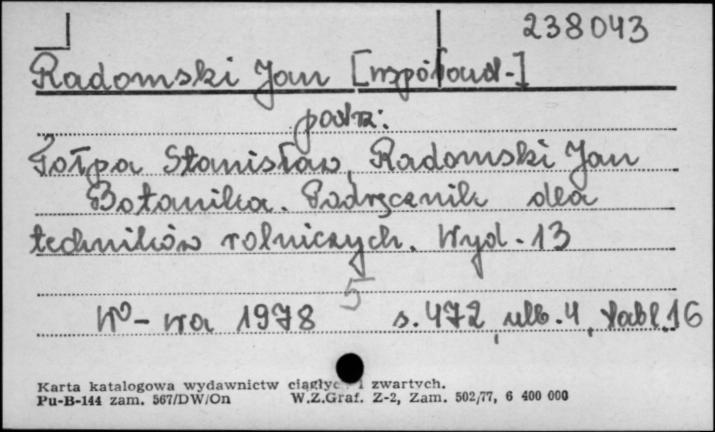 238043
Radomski Jan [współaut.]
patrz:
Tołpa Stanisław, Radomski Jan
Botanika. Podręcznik dla
techników rolniczych. Wyd. 13
5
W-wa 1978 s. 472, nlb. 4, tabl. 16
Karta katalogowa wydawnictw ciągłyc i zwartych.
Pu-B-144 zam. 567/DW/On W.Z.Graf. Z-2, Zam. 502/77, 6 400 000